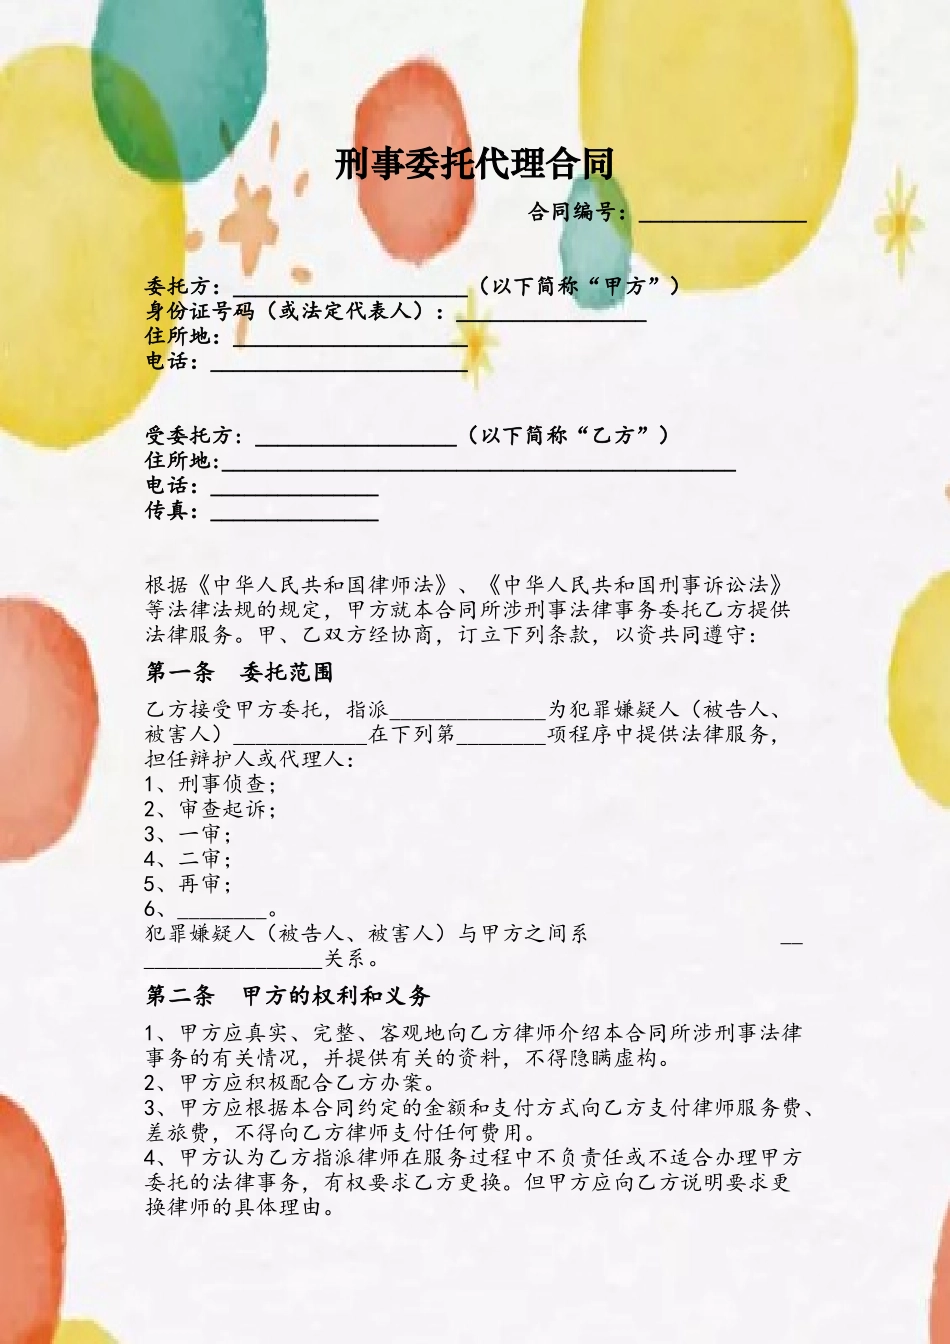 刑事委托代理合同
合同编号：_______________
委托方：_____________________（以下简称“甲方”）
身份证号码（或法定代表人）：_________________
住所地：_____________________
电话：_______________________
受委托方：__________________（以下简称“乙方”）
住所地:______________________________________________
电话：_______________
传真：_______________
根据《中华人民共和国律师法》、《中华人民共和国刑事诉讼法》
等法律法规的规定，甲方就本合同所涉刑事法律事务委托乙方提供
法律服务。甲、乙双方经协商，订立下列条款，以资共同遵守：
第一条　委托范围
乙方接受甲方委托，指派______________为犯罪嫌疑人（被告人、
被害人）____________在下列第________项程序中提供法律服务，
担任辩护人或代理人：
1、刑事侦查；
2、审查起诉；
3、一审；
4、二审；
5、再审；
6、________。
犯罪嫌疑人（被告人、被害人）与甲方之间系 __
________________关系。
第二条　甲方的权利和义务
1、甲方应真实、完整、客观地向乙方律师介绍本合同所涉刑事法律
事务的有关情况，并提供有关的资料，不得隐瞒虚构。
2、甲方应积极配合乙方办案。
3、甲方应根据本合同约定的金额和支付方式向乙方支付律师服务费、
差旅费，不得向乙方律师支付任何费用。
4、甲方认为乙方指派律师在服务过程中不负责任或不适合办理甲方
委托的法律事务，有权要求乙方更换。但甲方应向乙方说明要求更
换律师的具体理由。